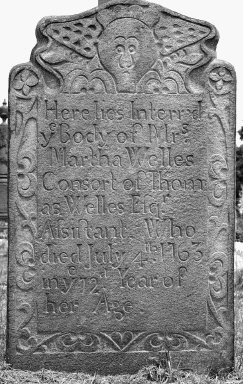 Here lies Interr'd
yᵉ Body of Mʳˢ.
Martha Welles
Consort of Thom
as Welles Esqʳ
Assistant. Who
died July 4ᵗʰ 1763
in yᵉ 72ᵈ Year of
her Age.